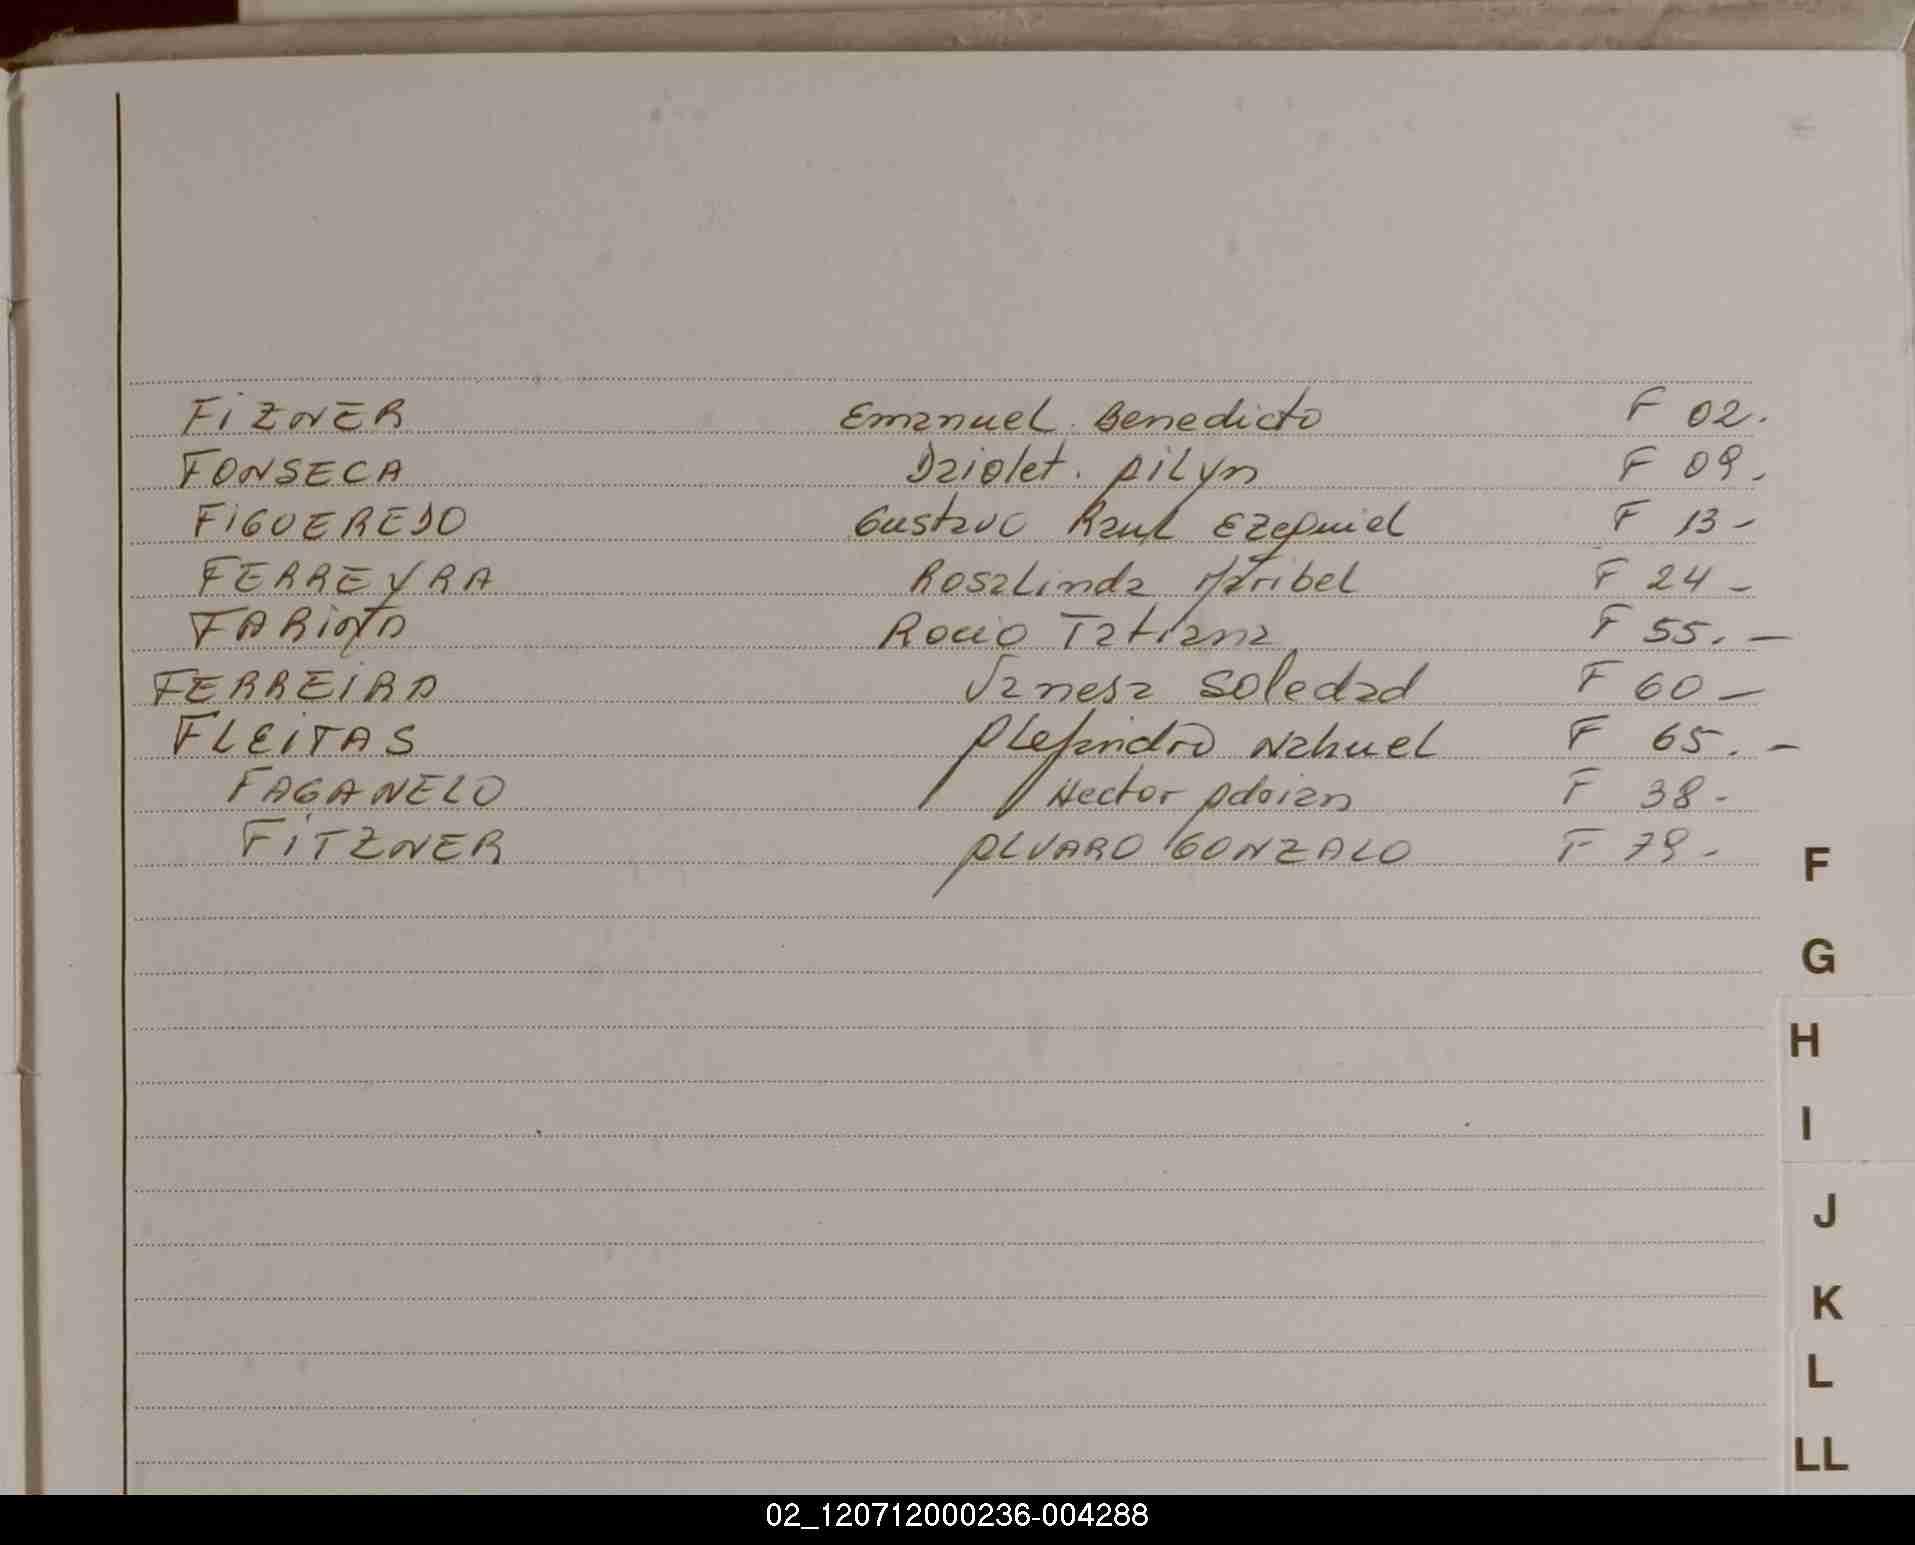 FIZNER Emanuel Benedicto F 02.
FONSECA Daiolet. Ailyn F 09.
FIGUEREDO Gustavo Raul Ezequiel F 13-
FERREYRA Rosalinda Maribel F 24-
Rocio Tatiana F 55.-
FERREIRA Vanesa Soledad F 60-
FLEITAS Alejandro Nahuel F 65.-
FAGANELO Hector Adrian F 38-
FITZNER ALVARO GONZALO F 79-
F
G
H
I
J
K
L
LL
02_120712000236-004288